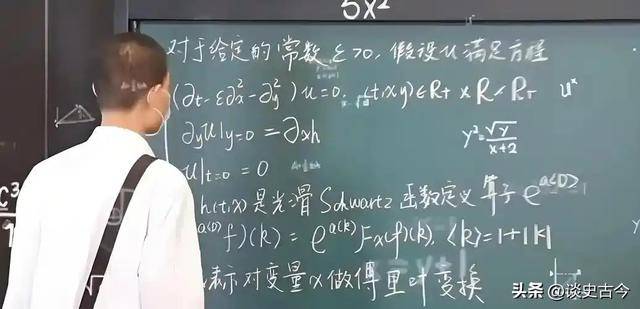 5x²
对于给定的常数 ε>0, 假设 u 满足方程
(∂t-ε∂x²-∂y²)u=0, (t,x,y)∈R+×R×R+
u^x
∂yu|y=0=∂xh
y²=√y/(x+2)
u|t=0=0
h(t,x)是光滑Schwartz函数定义算子e^a<D>
f)(k)=e^a(k)Fx(f)(k), <k>=1+|k|
C³
9
= y+1
表示对变量x做傅里叶变换
头条 @谈史古今